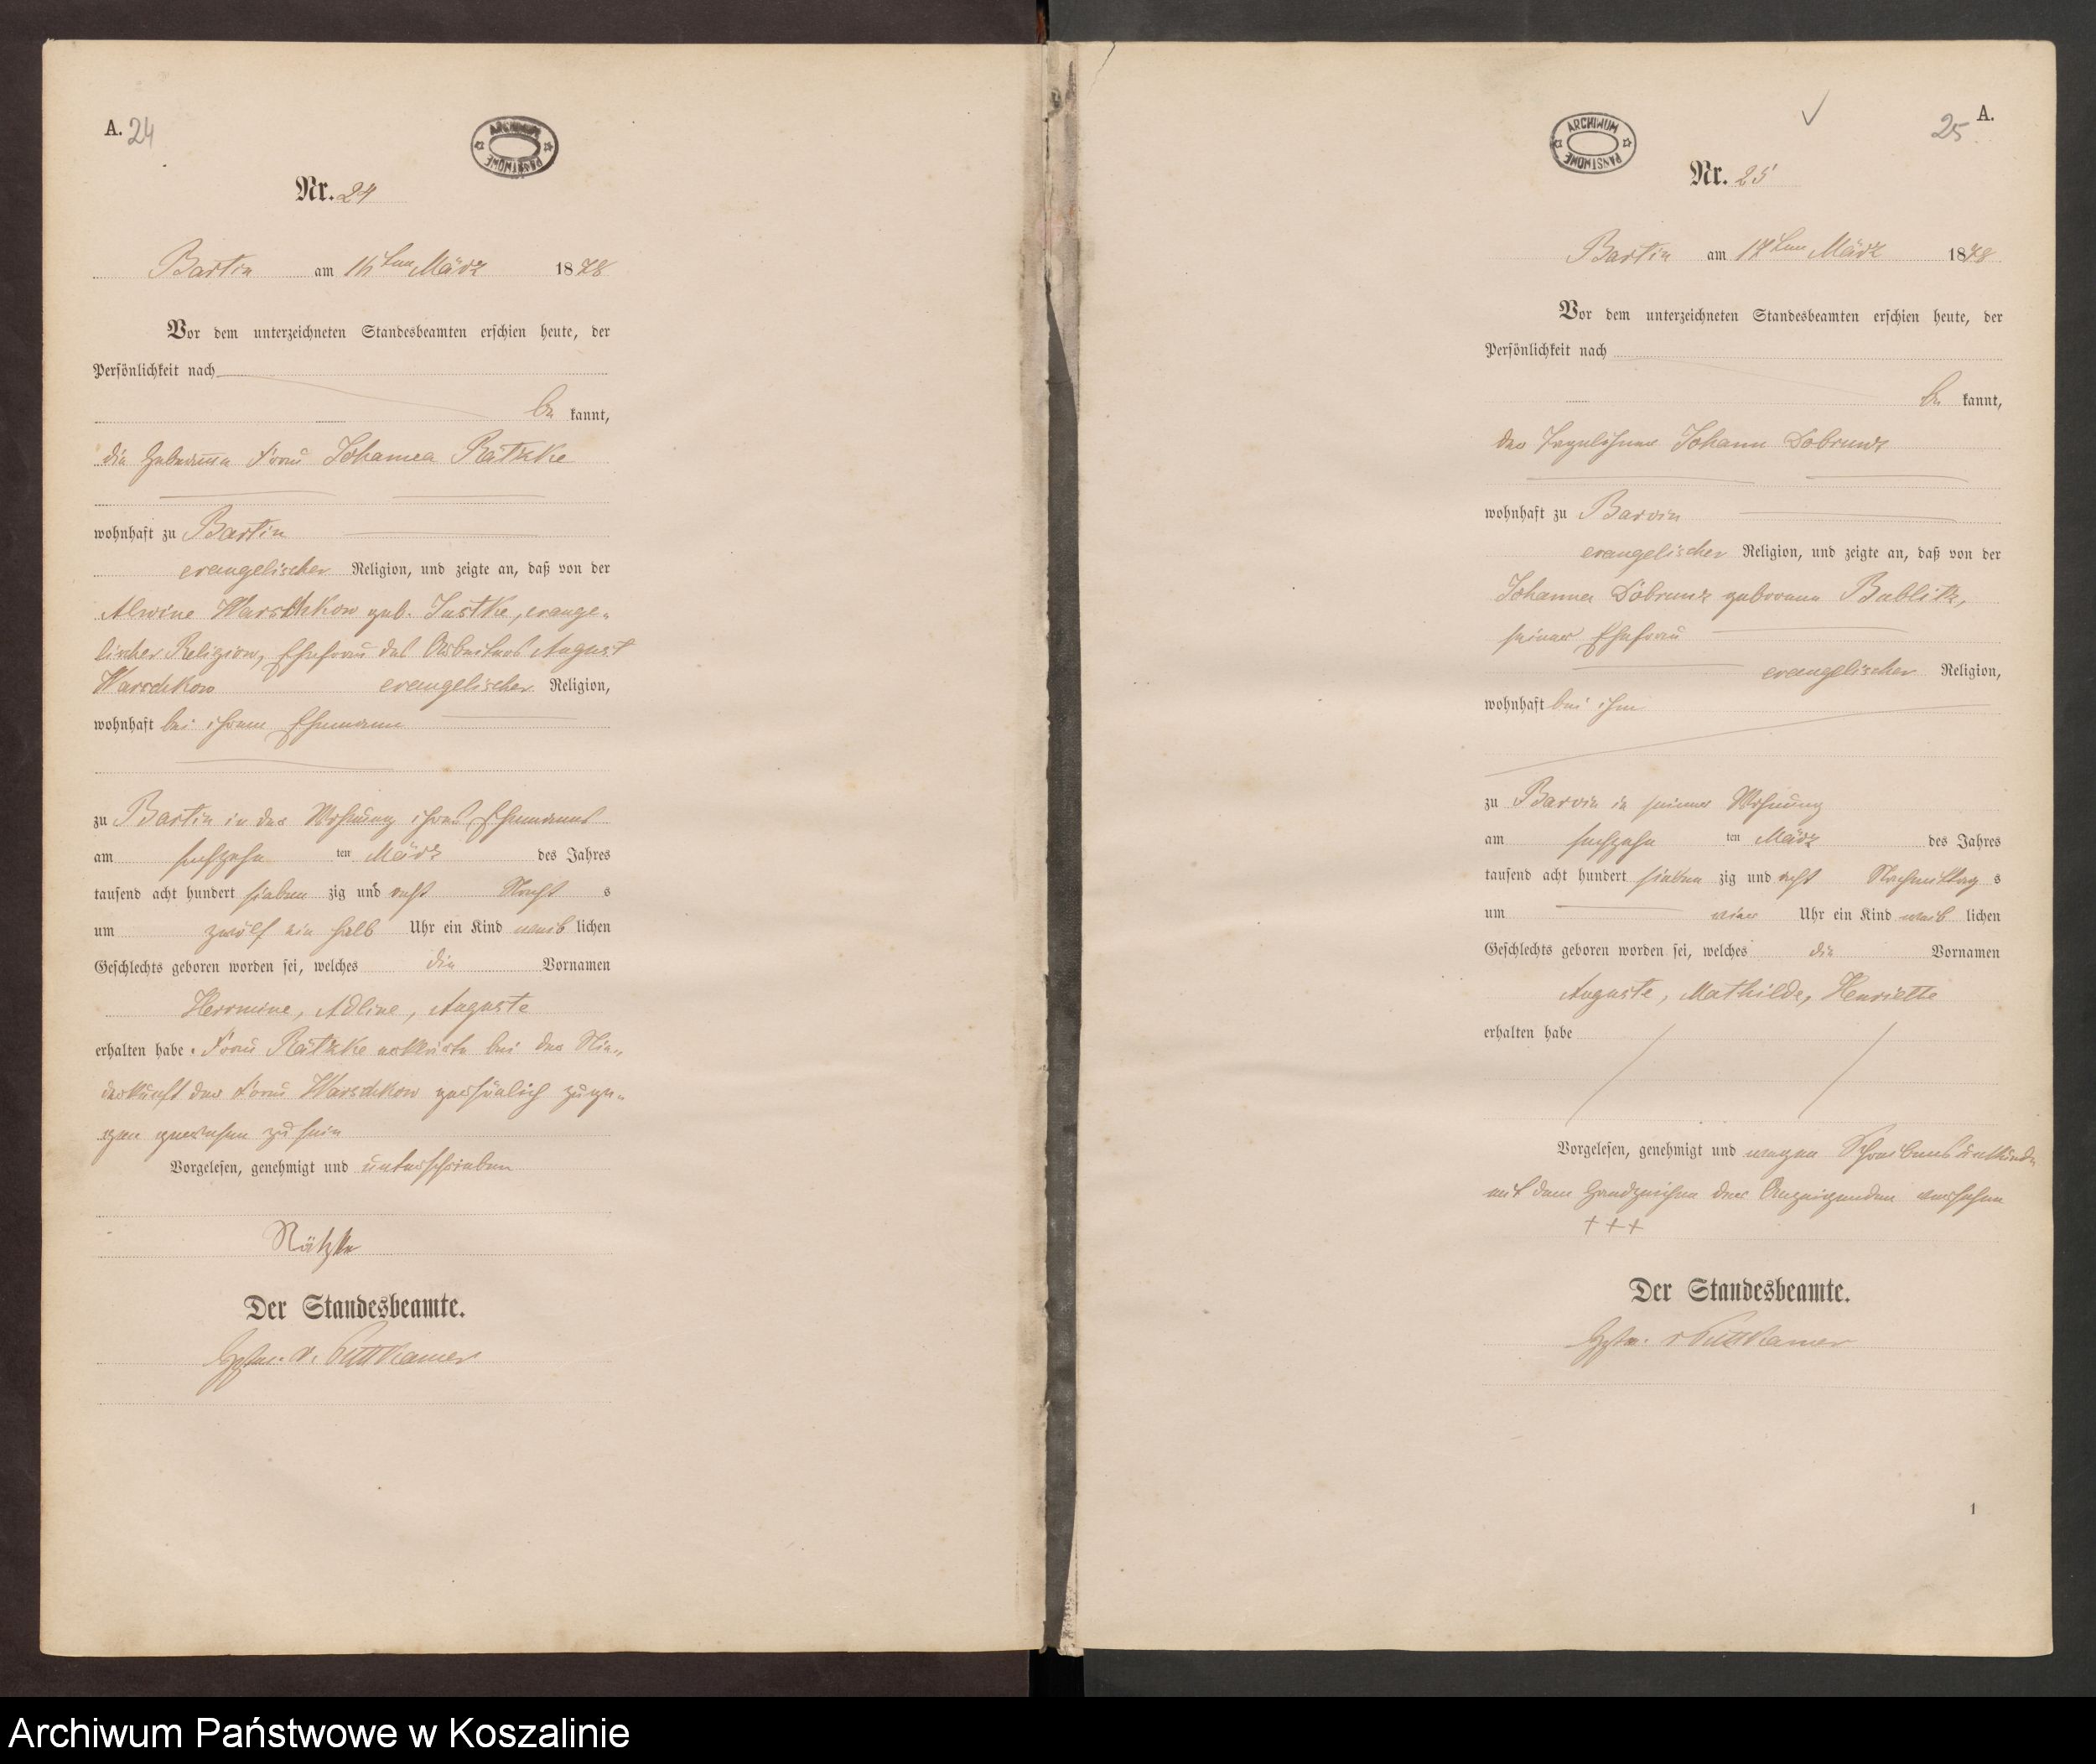 A. 24
ARCHIWUM PAŃSTWOWE
Nr. 24
Bartin am 16ten März 1878
Vor dem unterzeichneten Standesbeamten erschien heute, der
Persönlichkeit nach
be kannt,
die Hebamme Frau Johanna Rätzke
wohnhaft zu Bartin
evangelischer Religion, und zeigte an, daß von der
Alwine Warschkow geb. Justke, evange-
lischer Religion, Ehefrau des Arbeiters August
Warschkow evangelischer Religion,
wohnhaft bei ihrem Ehemann
zu Bartin in der Wohnung ihres Ehemanns
am sechzehn ten März des Jahres
tausend acht hundert sieben zig und acht Nacht s
um zwölf ein halb Uhr ein Kind weib lichen
Geschlechts geboren worden sei, welches die Vornamen
Hermine, Adline, Auguste
erhalten habe. Frau Rätzke erklärte bei der Nie-
derkunft der Frau Warschkow persönlich zuge-
gen gewesen zu sein
Vorgelesen, genehmigt und unterschrieben
Rätzke
Der Standesbeamte.
v. Puttkamer
A.
25
ARCHIWUM PAŃSTWOWE
Nr. 25
Bartin am 17ten März 1878
Vor dem unterzeichneten Standesbeamten erschien heute, der
Persönlichkeit nach
be kannt,
der Tagelöhner Johann Dobrunz
wohnhaft zu Barvin
evangelischer Religion, und zeigte an, daß von der
Johanna Dobrunz geborene Bablitz,
seiner Ehefrau
evangelischer Religion,
wohnhaft bei ihm
zu Barvin in seiner Wohnung
am sechzehn ten März des Jahres
tausend acht hundert sieben zig und acht Nachmittag s
um vier Uhr ein Kind weib lichen
Geschlechts geboren worden sei, welches die Vornamen
Auguste, Mathilde, Henriette
erhalten habe
Vorgelesen, genehmigt und wegen Schreibensunkunde
mit dem Handzeichen des Anzeigenden versehen
+++
Der Standesbeamte.
v Puttkamer
1
Archiwum Państwowe w Koszalinie